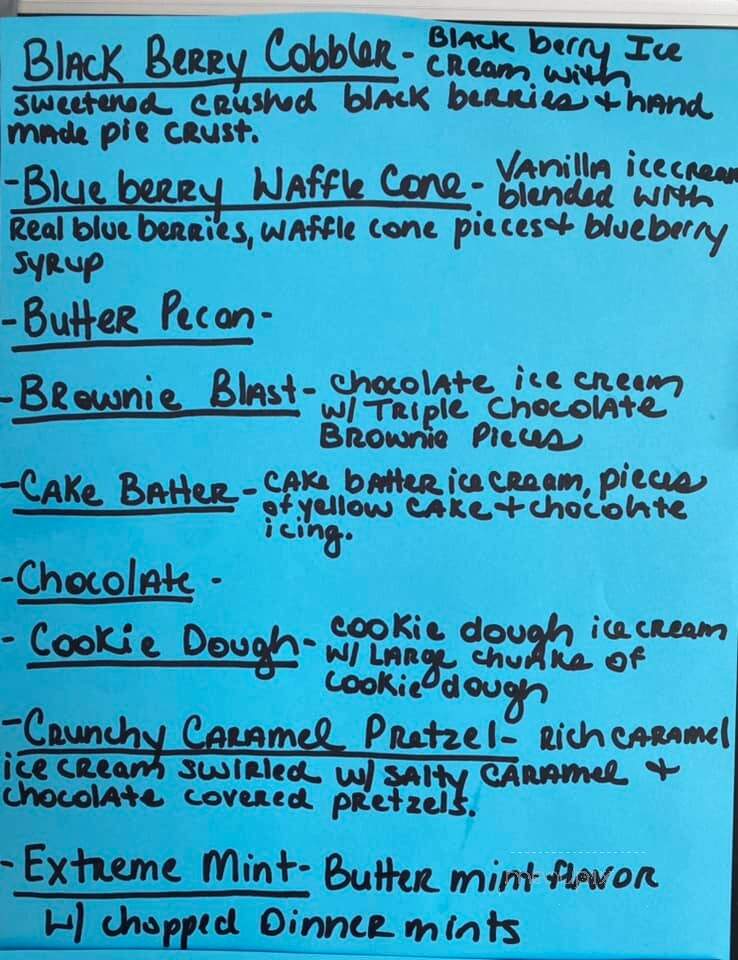 Black Berry Cobbler - Black berry Ice
cream with
sweetened crushed black berries + hand
made pie crust.
- Blue berry Waffle Cone - Vanilla ice cream
blended with
Real blue berries, waffle cone pieces + blueberry
syrup
- Butter Pecan -
- Brownie Blast - chocolate ice cream
w/ Triple Chocolate
Brownie Pieces
- Cake Batter - cake batter ice cream, pieces
of yellow cake + chocolate
icing.
- Chocolate -
- Cookie Dough - cookie dough ice cream
w/ Large chunks of
cookie dough
- Crunchy Caramel Pretzel - Rich caramel
ice cream swirled w/ salty caramel +
chocolate covered pretzels.
- Extreme Mint - Butter mint flavor
w/ chopped Dinner mints